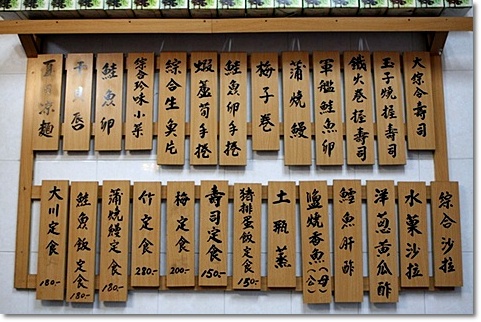 大綜合壽司
玉子燒握壽司
鐵火卷握壽司
軍艦鮭魚卵
蒲燒鰻
梅子卷
鮭魚卵手捲
蝦蘆筍手捲
綜合生魚片
綜合珍味小菜
鮭魚卵
干貝唇
涼麵
綜合沙拉
水菓沙拉
洋蔥黃瓜醋
鱈魚肝醋
鹽燒香魚(公)(母)
土瓶蒸
豬排蛋飯定食 150.-
壽司定食 150.-
梅定食 200.-
竹定食 280.-
蒲燒鰻定食 180.-
鮭魚飯定食 180.-
大川定食 180.-